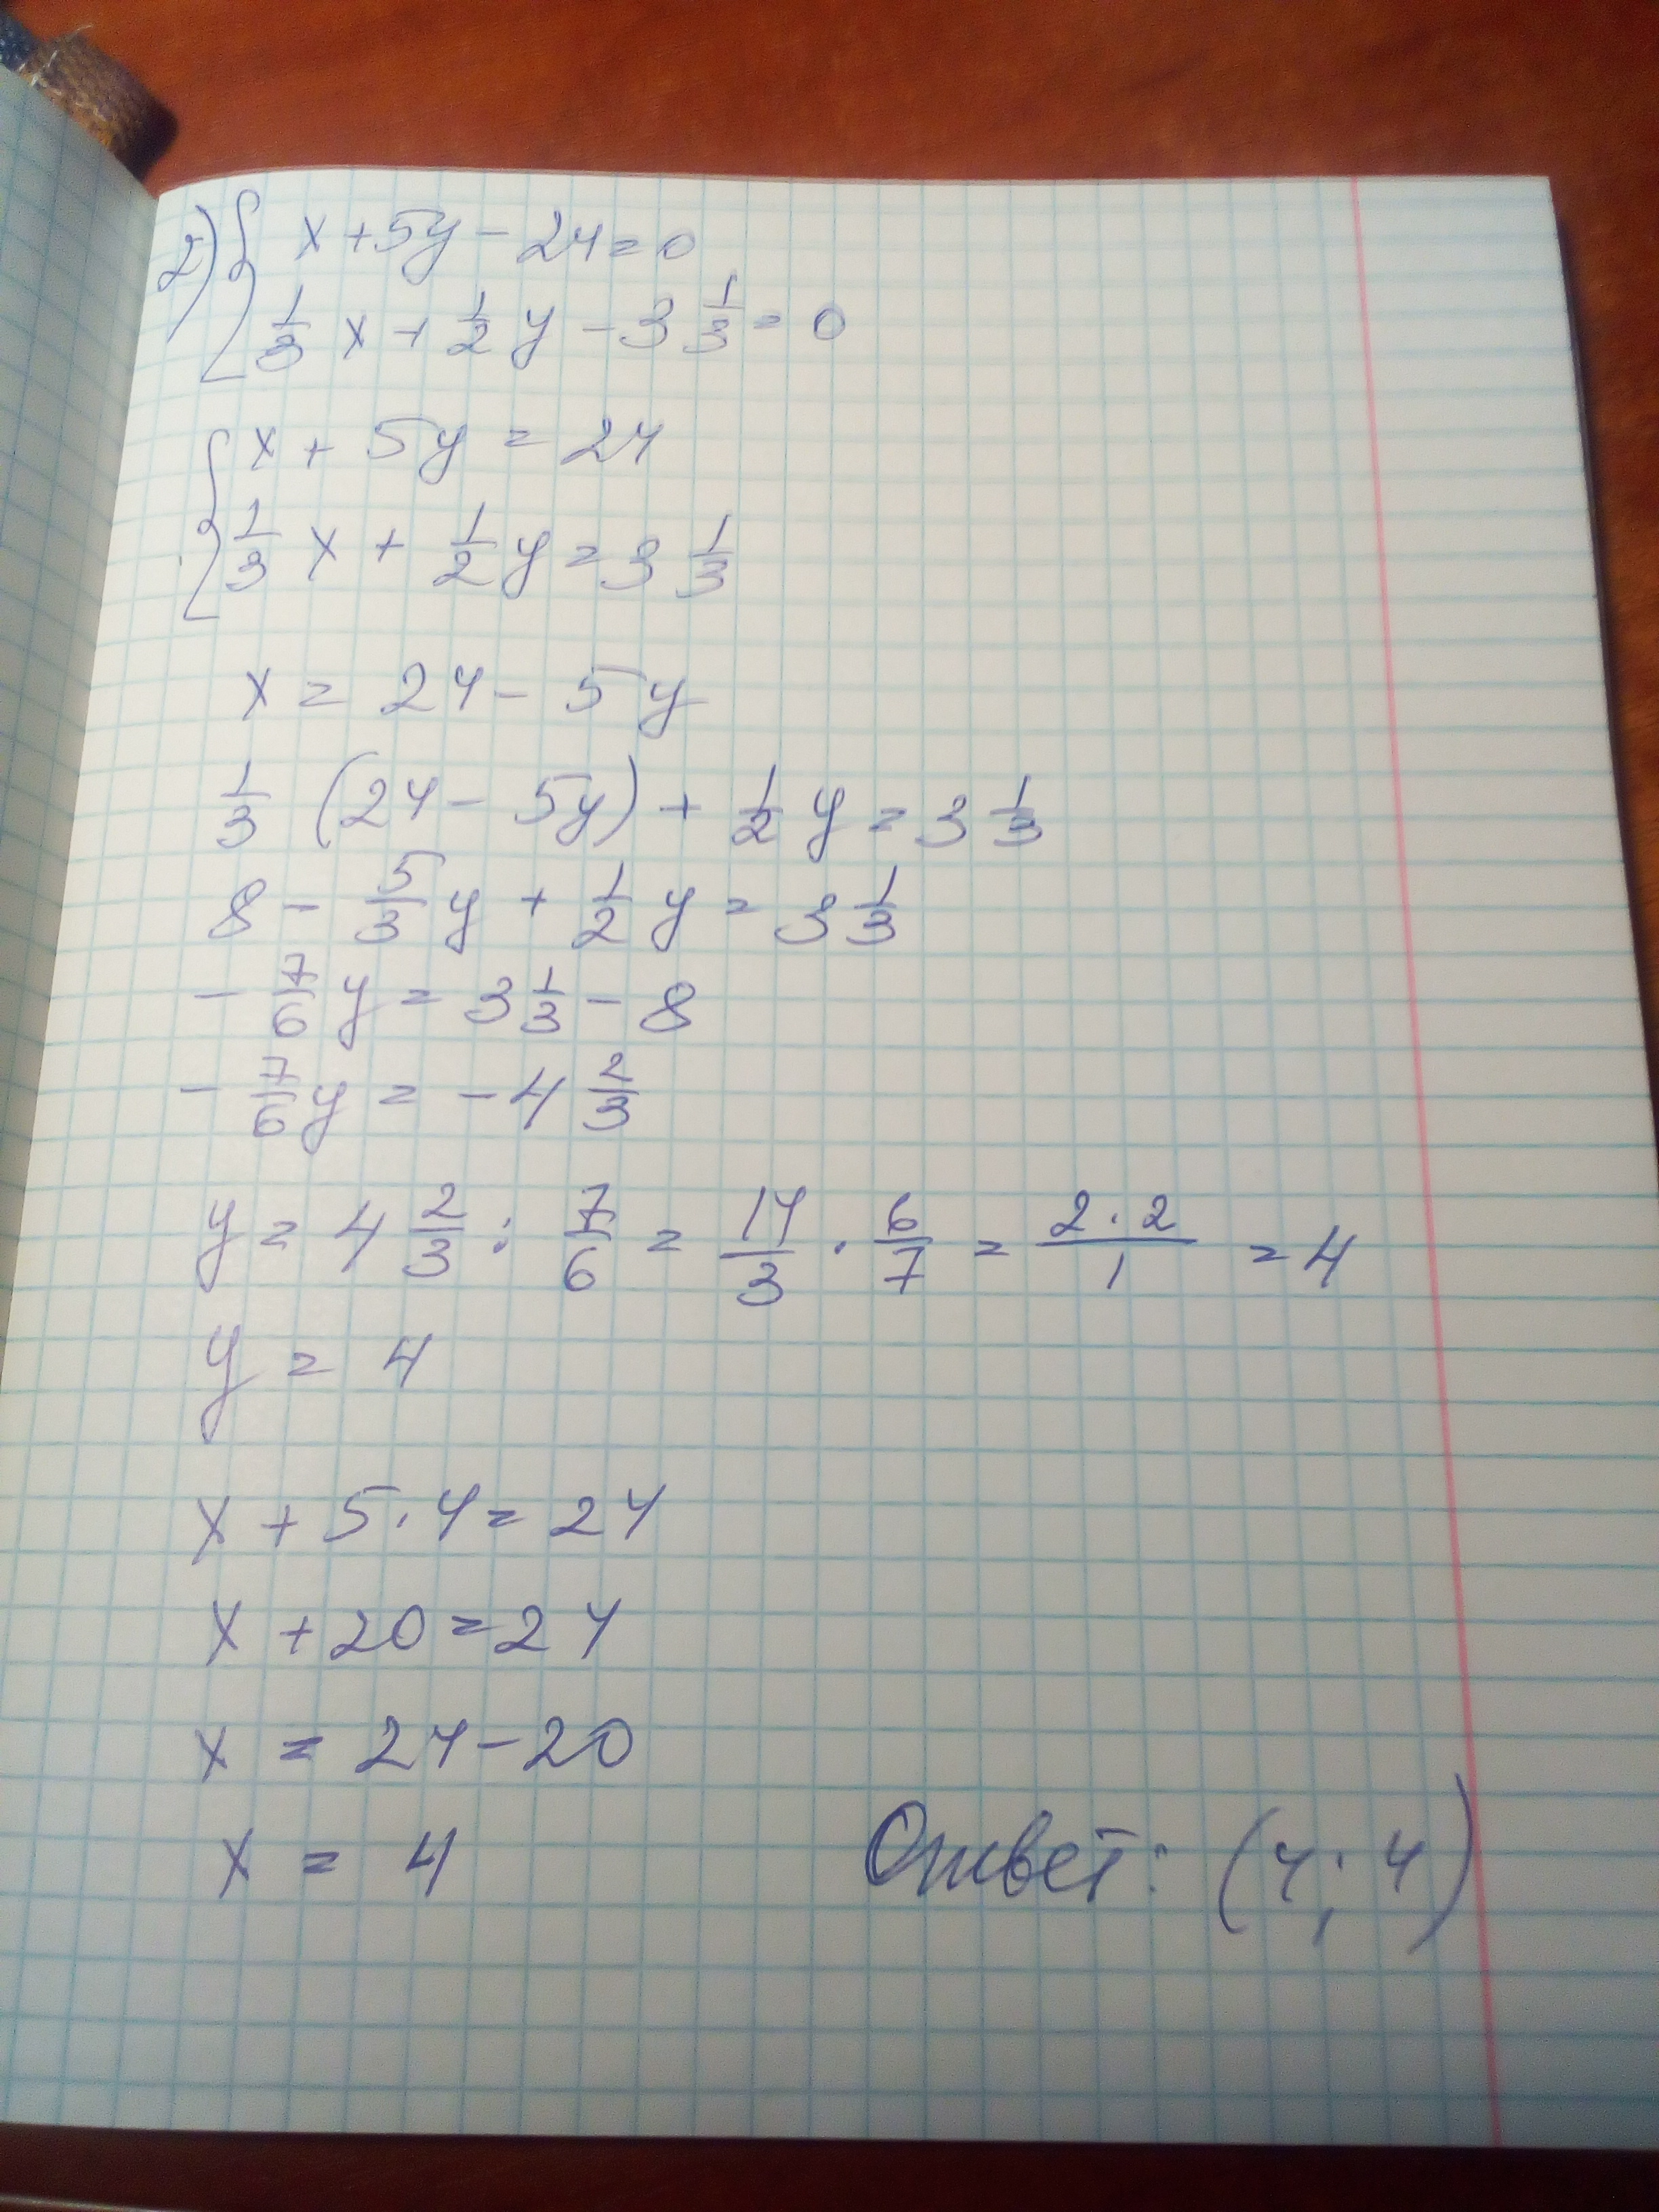 2) { x + 5y - 24 = 0
1/3 x + 1/2 y - 3 1/3 = 0
{ x + 5y = 24
1/3 x + 1/2 y = 3 1/3
x = 24 - 5y
1/3 (24 - 5y) + 1/2 y = 3 1/3
8 - 5/3 y + 1/2 y = 3 1/3
- 7/6 y = 3 1/3 - 8
- 7/6 y = - 4 2/3
y = 4 2/3 : 7/6 = 14/3 · 6/7 = 2·2/1 = 4
y = 4
x + 5·4 = 24
x + 20 = 24
x = 24 - 20
x = 4
Ответ: (4; 4)